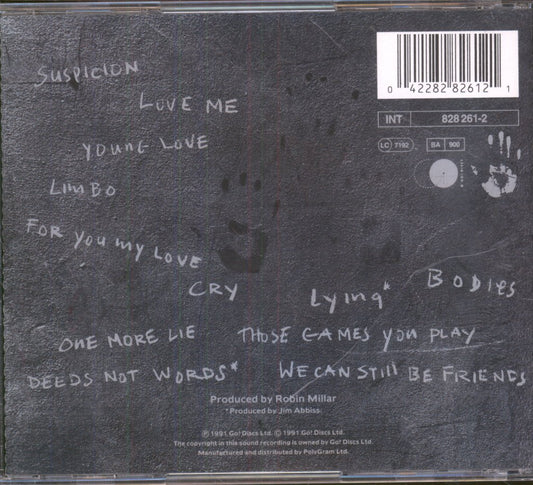 SUSPICION
LOVE ME
YOUNG LOVE
LIMBO
FOR YOU MY LOVE
CRY
Lying*
BODIES
ONE MORE LIE
THOSE GAMES YOU PLAY
DEEDS NOT WORDS*
WE CAN STILL BE FRIENDS
Produced by Robin Millar
*Produced by Jim Abbiss.
℗ 1991 Go! Discs Ltd. © 1991 Go! Discs Ltd.
The copyright in this sound recording is owned by Go! Discs Ltd.
Manufactured and distributed by PolyGram Ltd.
0 42282 82612 1
INT 828 261-2
LC 7192 BA 900